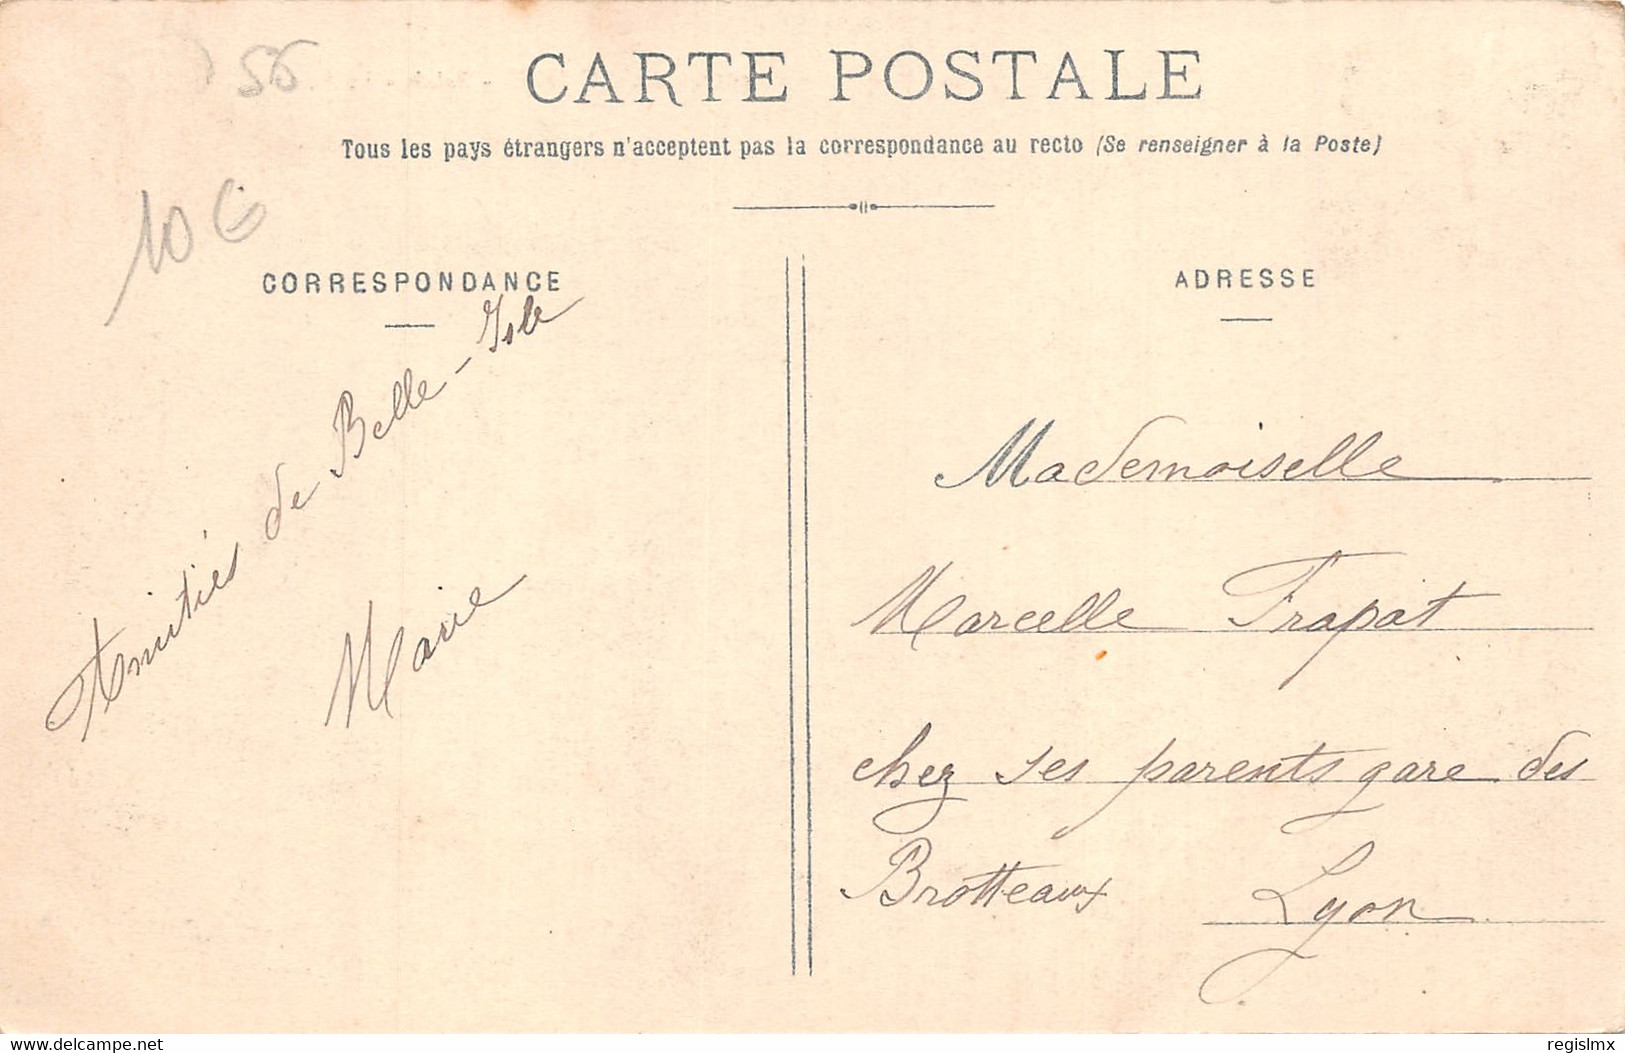 56
CARTE POSTALE
Tous les pays étrangers n'acceptent pas la correspondance au recto (Se renseigner à la Poste)
10 €
CORRESPONDANCE
Amitiés de Belle-Isle
Marie
ADRESSE
Mademoiselle
Marcelle Frapat
chez ses parents gare des
Brotteaux Lyon
www.delcampe.net
regislmx